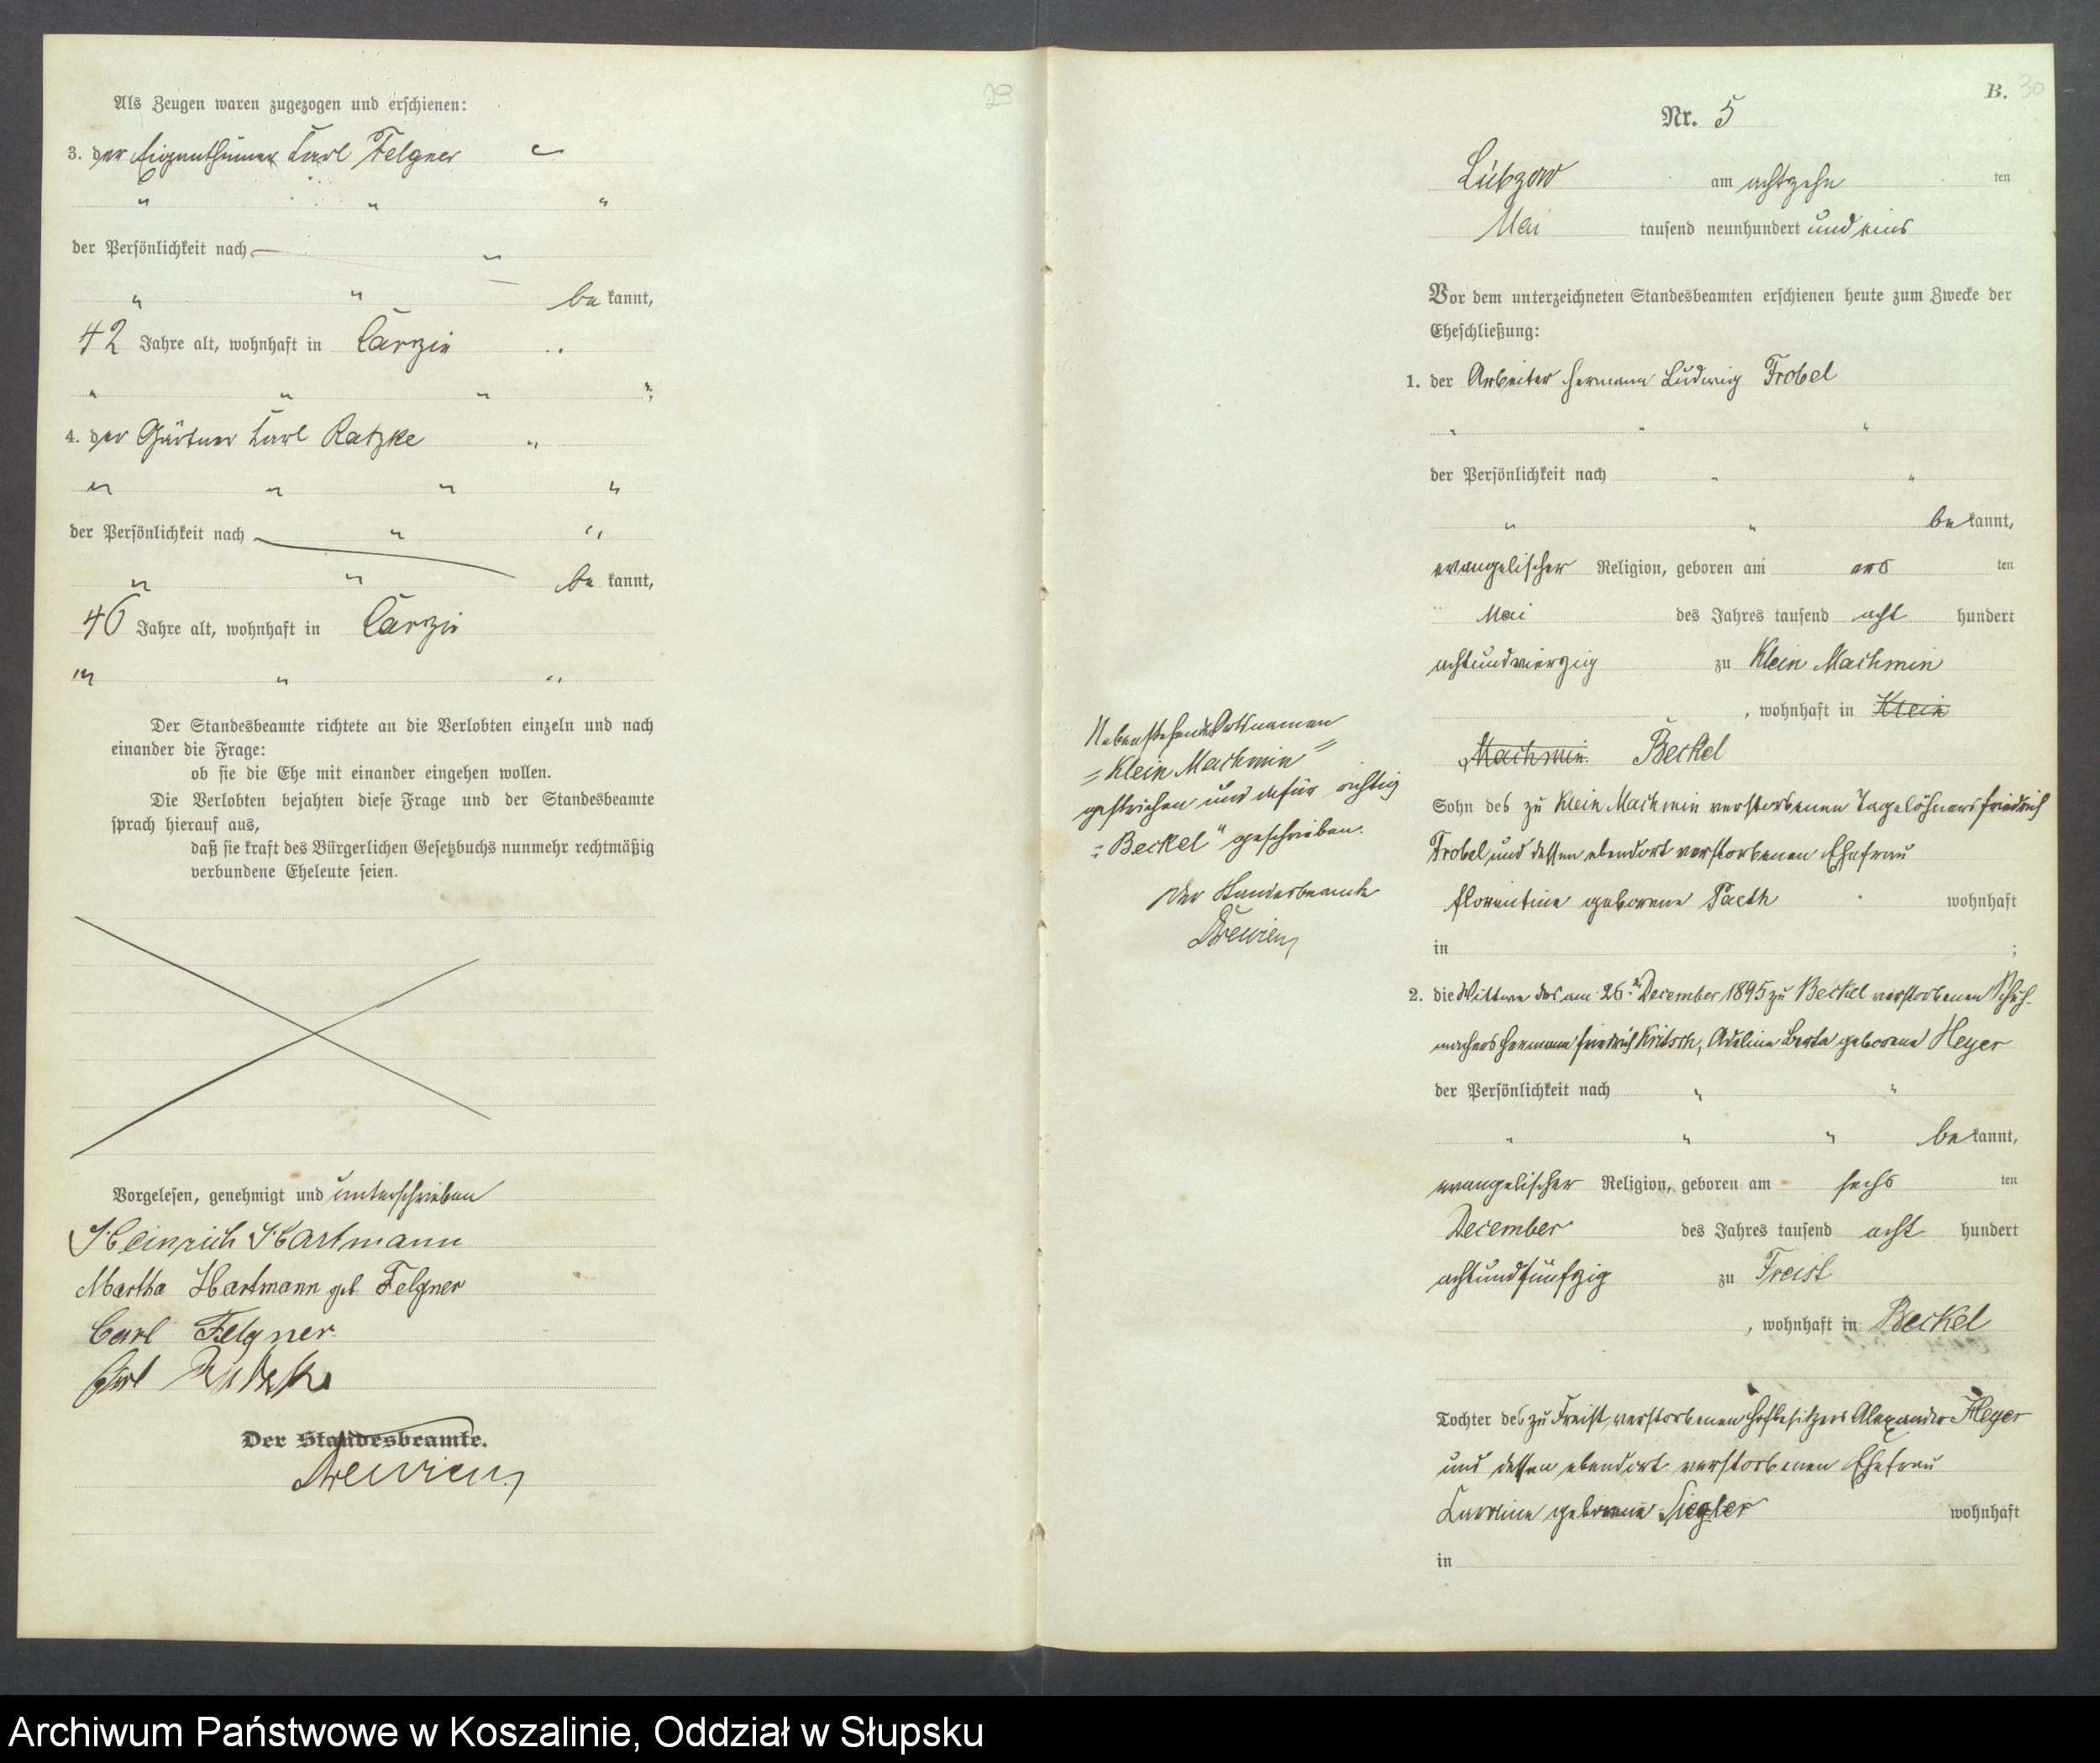 Als Zeugen waren zugezogen und erschienen:
3. der Eigenthümer Carl Felgner
der Persönlichkeit nach
bekannt,
42 Jahre alt, wohnhaft in Carzin
4. der Gärtner Carl Ratzke
der Persönlichkeit nach
bekannt,
46 Jahre alt, wohnhaft in Carzin
Der Standesbeamte richtete an die Verlobten einzeln und nach
einander die Frage:
ob sie die Ehe mit einander eingehen wollen.
Die Verlobten bejahten diese Frage und der Standesbeamte
sprach hierauf aus,
daß sie kraft des Bürgerlichen Gesetzbuchs nunmehr rechtmäßig
verbundene Eheleute seien.
Vorgelesen, genehmigt und unterschrieben
Heinrich Hartmann
Martha Hartmann geb Felgner
Carl Felgner
Carl Ratzke
Der Standesbeamte.
Drewien
29
B. 30
Nr. 5
Lübzow am achtzehnten
Mai tausend neunhundert und eins
Vor dem unterzeichneten Standesbeamten erschienen heute zum Zwecke der
Eheschließung:
1. der Arbeiter Hermann Ludwig Trobel
der Persönlichkeit nach
bekannt,
evangelischer Religion, geboren am ersten
Mai des Jahres tausend acht hundert
achtundvierzig zu Klein Machmin
, wohnhaft in Klein
Machmin. Beckel
Sohn des zu Klein Machmin verstorbenen Tagelöhners Friedrich
Trobel und dessen ebendort verstorbenen Ehefrau
Florentine geborene Paeth wohnhaft
in ;
2. die Wittwe des am 26ten December 1895 zu Beckel verstorbenen Schuh-
machers Hermann Friedrich Kritsch, Adeline Berta geborene Heyer
der Persönlichkeit nach
bekannt,
evangelischer Religion, geboren am sechsten
December des Jahres tausend acht hundert
achtundfünfzig zu Freist
, wohnhaft in Beckel
Tochter des zu Freist verstorbenen Hofbesitzers Alexander Heyer
und dessen ebendort verstorbenen Ehefrau
Karoline geborene Siegler wohnhaft
in
Nebenstehende Ortsnamen
"Klein Machmin"
gestrichen und dafür richtig
"Beckel" geschrieben.
Der Standesbeamte
Drewien
Archiwum Państwowe w Koszalinie, Oddział w Słupsku